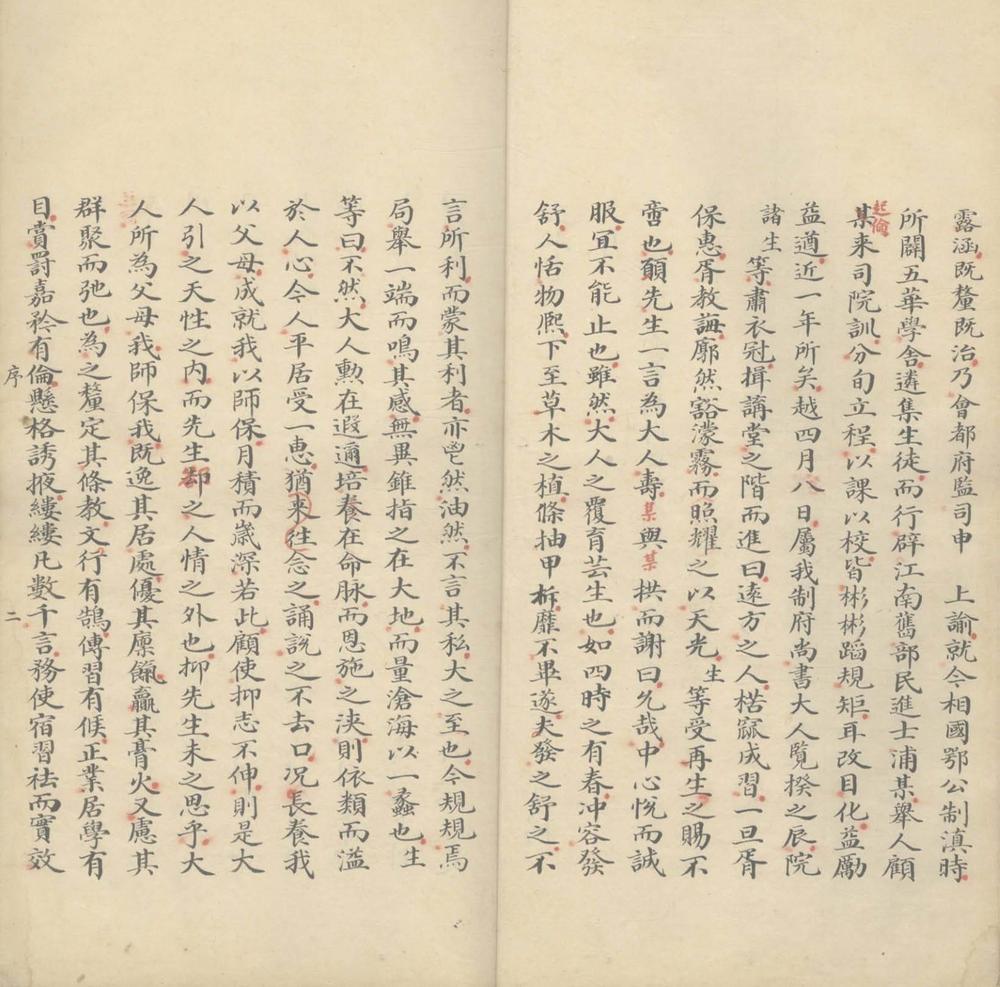 露涵既釐既治乃會都府監司申　上諭就今相國鄂公制滇時
所闢五華學舍遴集生徒而行辟江南舊部民進士浦某舉人顧
某来司院訓分旬立程以課以校皆彬彬蹈規矩耳改目化益勵
起倫
益遒近一年所矣越四月八日屬我制府尚書大人覽揆之辰院
諸生等肅衣冠揖講堂之階而進曰逺方之人楛窳成習一旦胥
保惠胥教誨廓然豁濛霧而照耀之以天光生等受再生之賜不
啻也願先生一言為大人壽某與某拱而謝曰允哉中心悅而誠
服冝不能止也雖然大人之覆育芸生也如四時之有春冲容發
舒人恬物熈下至草木之植條抽甲柝靡不畢遂夫發之舒之不
言所利而蒙其利者亦鬯然油然不言其私大之至也今規規焉
局舉一端而鳴其感無異錐指之在大地而量滄海以一蠡也生
等曰不然大人勲在遐邇培養在命脈而恩施之浹則依類而溢
於人心今人平居受一惠猶来往念之誦說之不去口况長養我
以父母成就我以師保月積而歲深若此顧使抑志不伸則是大
人引之天性之内而先生却之人情之外也抑先生未之思乎大
人所為父母我師保我既逸其居處優其廪餼赢其膏火又慮其
群聚而弛也為之釐定其條教文行有鵠傳習有候正業居學有
目賞罰嘉矜有倫懸格誘掖縷縷凡數千言務使宿習祛而實效
序
二